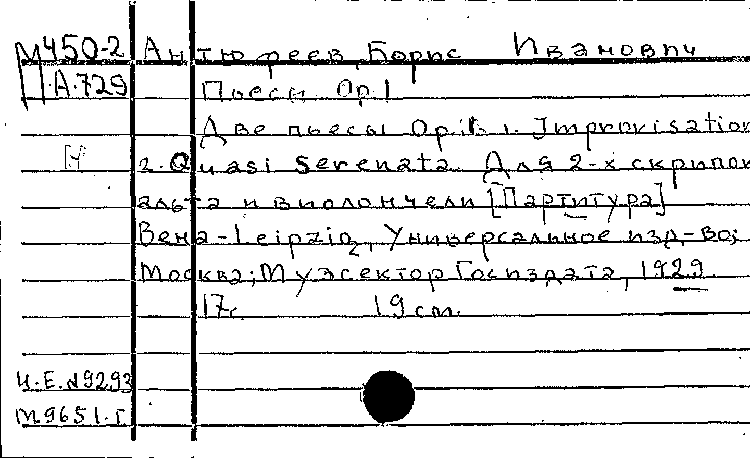 М450-2 Антюфеев, Борис Иванович
П.А.729 Пьесы Op. 1
Две пьесы Op. 1. Improvisation
Н 2. Quasi Serenata. Для 2-х скрипок
альта и виолончели [Партитура]
Вена-Leipzig, Универсальное изд-во;
Москва; Музсектор Госиздата, 1929.
17с. 19 cm.
U.E. №9293
М.9651.Г.